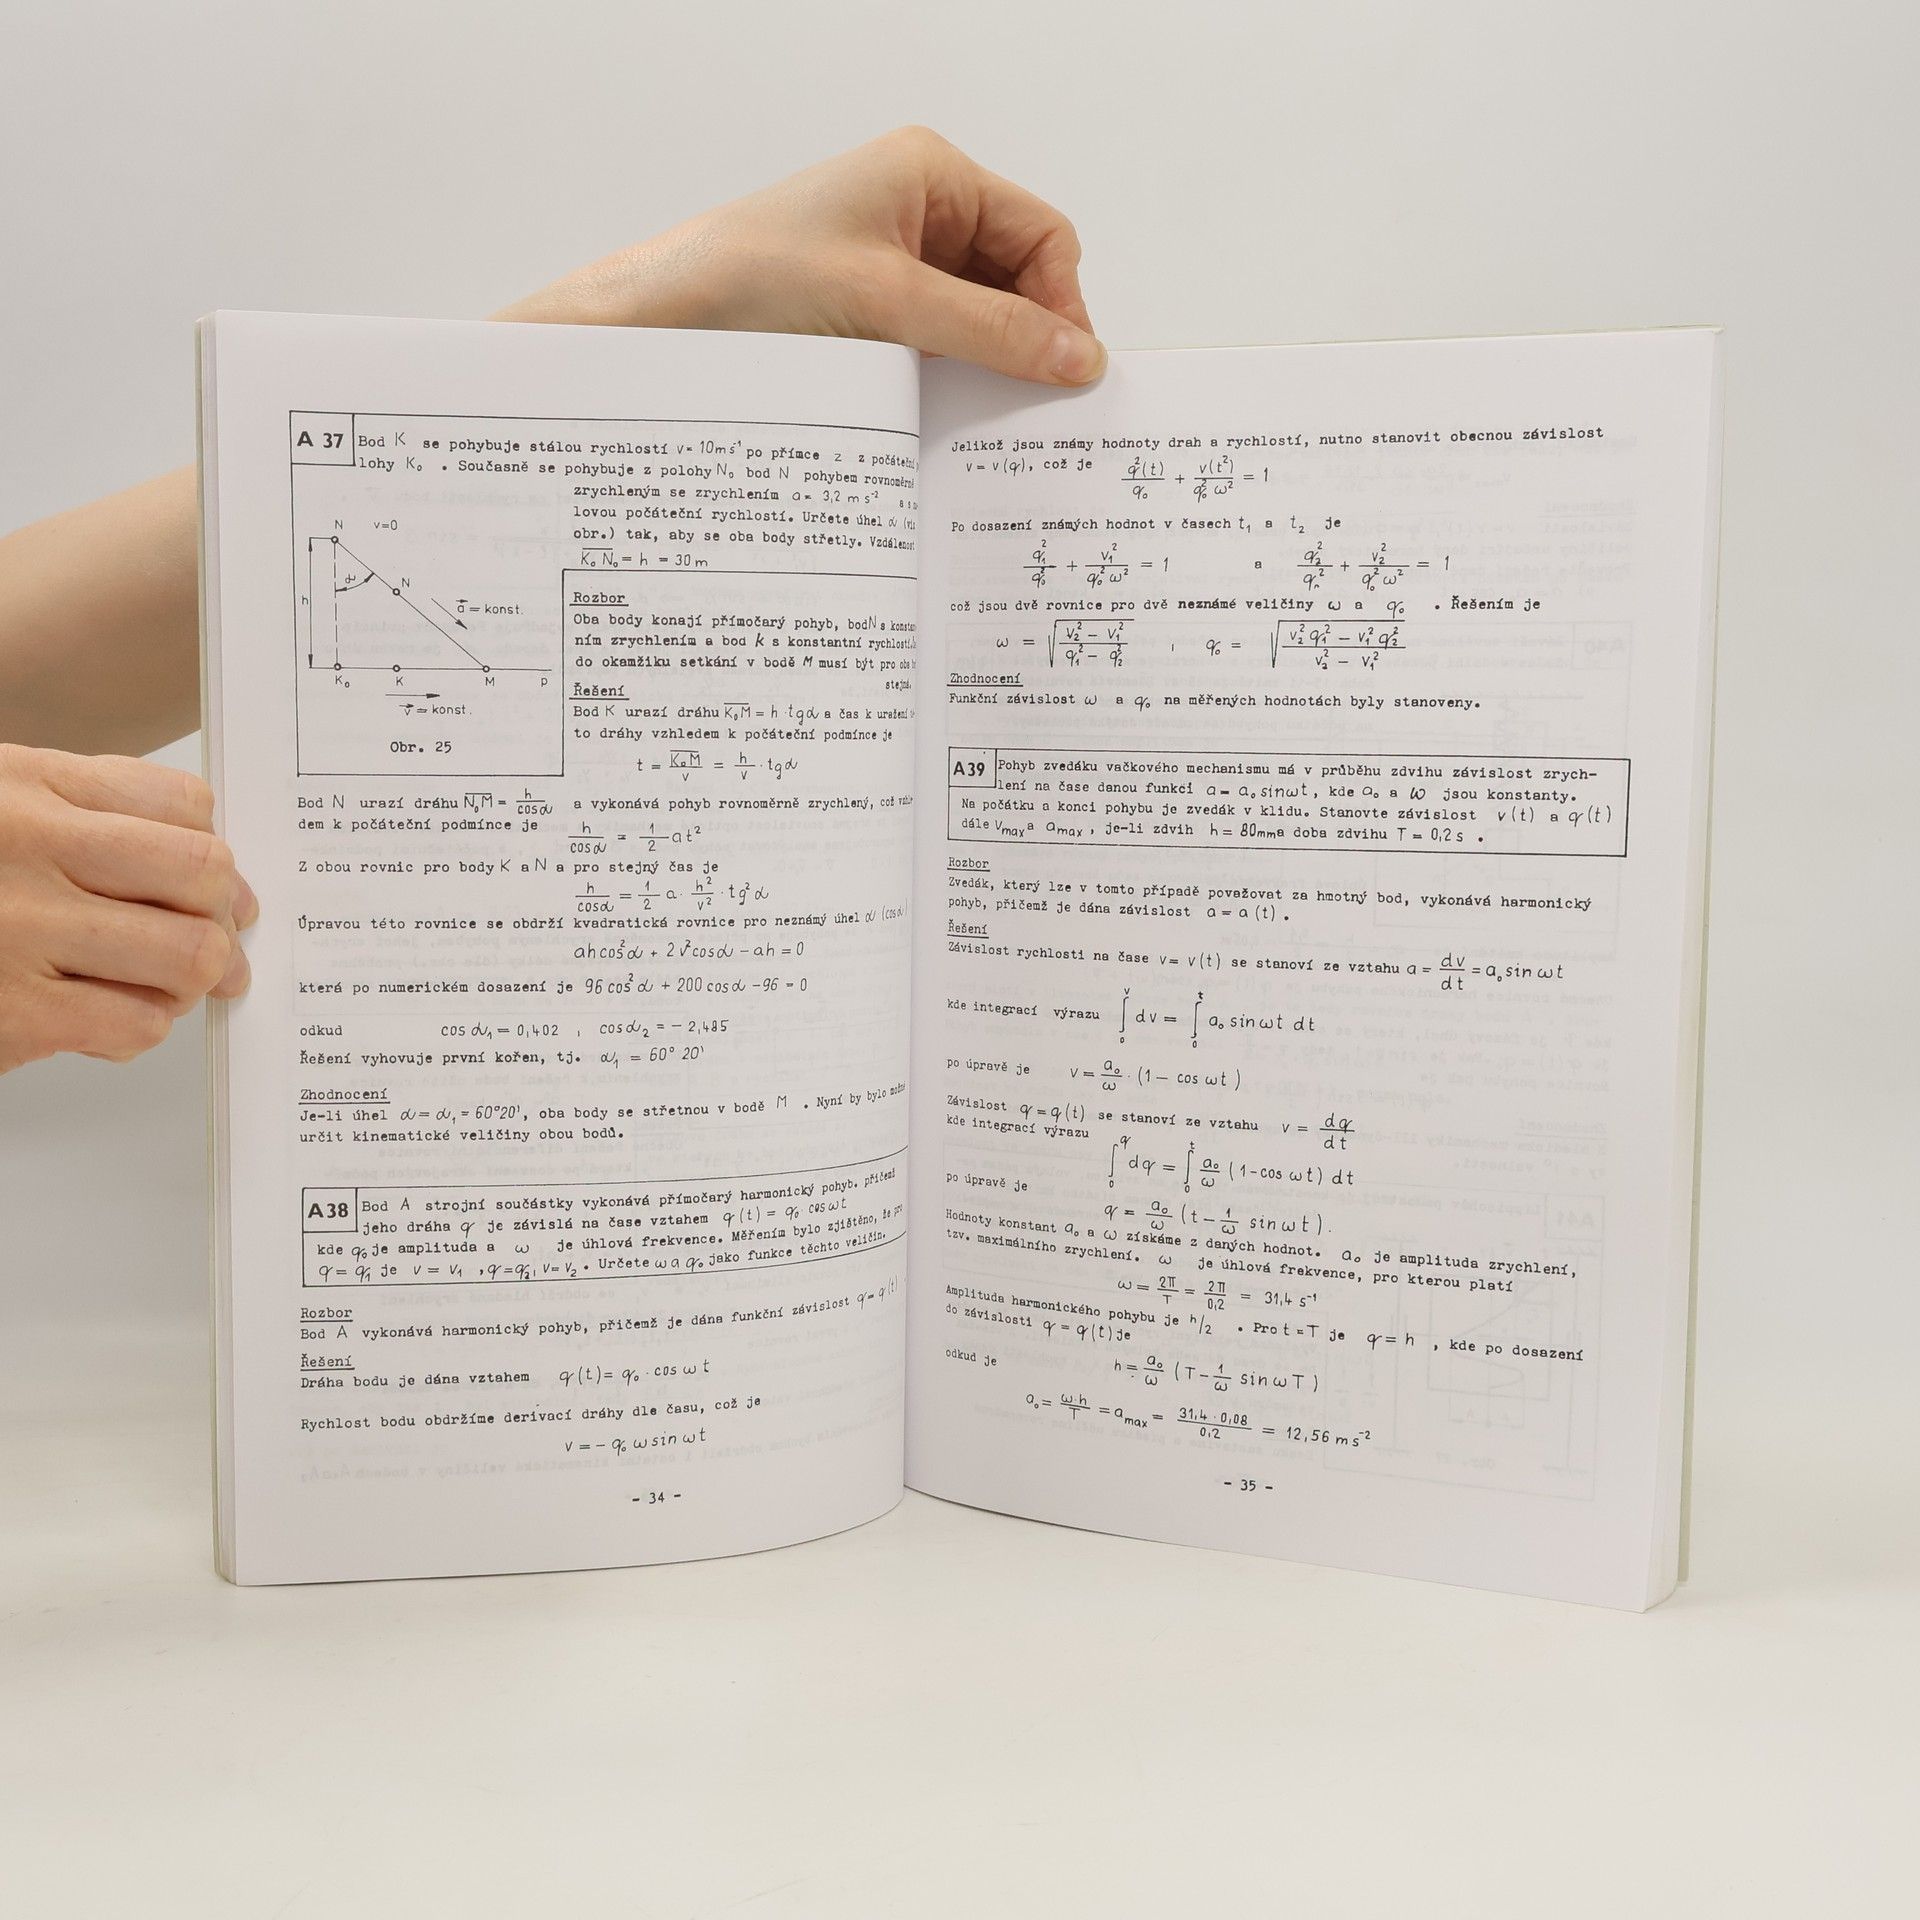 A 37 Bod K se pohybuje stálou rychlostí v = 10 ms⁻¹ po přímce z z počáteční
lohy K₀ . Současně se pohybuje z polohy N₀ bod N pohybem rovnoměrně
zrychleným se zrychlením a = 3,2 m s⁻²
lovou počáteční rychlostí. Určete úhel α
obr.) tak, aby se oba body střetly. Vzdálenost
K₀ N₀ = h = 30 m
N v=0
h α N
a⃗ = konst.
K₀ K M p
v⃗ = konst.
Obr. 25
Rozbor
Oba body konají přímočarý pohyb, bod N s konstan
ním zrychlením a bod K s konstantní rychlostí.
do okamžiku setkání v bodě M musí být pro oba
stejná.
Řešení
Bod K urazí dráhu K₀M = h · tgα a čas k uražení
to dráhy vzhledem k počáteční podmínce je
t = K₀M / v = h / v · tgα
Bod N urazí dráhu N₀M = h / cosα a vykonává pohyb rovnoměrně zrychlený, což
dem k počáteční podmínce je h / cosα = 1/2 at²
Z obou rovnic pro body K a N a pro stejný čas je
h / cosα = 1/2 a · h²/v² · tg²α
Úpravou této rovnice se obdrží kvadratická rovnice pro neznámý úhel α (cosα)
ah cos²α + 2v² cosα - ah = 0
která po numerickém dosazení je 96 cos²α + 200 cosα - 96 = 0
odkud cos α₁ = 0,402 , cosα₂ = - 2,485
Řešení vyhovuje první kořen, tj. α₁ = 60° 20'
Zhodnocení
Je-li úhel α = α₁ = 60°20', oba body se střetnou v bodě M . Nyní by bylo možné
určit kinematické veličiny obou bodů.
A38 Bod A strojní součástky vykonává přímočarý harmonický pohyb. přičemž
jeho dráha q je závislá na čase vztahem q(t) = q₀ · cos ωt
kde q₀ je amplituda a ω je úhlová frekvence. Měřením bylo zjištěno, že pro
q = q₁ je v = v₁ , q = q₂, v = v₂ . Určete ω a q₀ jako funkce těchto veličin.
Rozbor
Bod A vykonává harmonický pohyb, přičemž je dána funkční závislost q = q(t)
Řešení
Dráha bodu je dána vztahem q(t) = q₀ · cos ωt
Rychlost bodu obdržíme derivací dráhy dle času, což je
v = - q₀ ω sin ωt
- 34 -
Jelikož jsou známy hodnoty drah a rychlostí, nutno stanovit obecnou závislost
v = v(q), což je q²(t) / q₀ + v(t²) / q₀² ω² = 1
Po dosazení známých hodnot v časech t₁ a t₂ je
q₁² / q₀² + v₁² / q₀² ω² = 1 a q₂² / q₀² + v₂² / q₀² ω² = 1
což jsou dvě rovnice pro dvě neznámé veličiny ω a q₀ . Řešením je
ω = √((v₂² - v₁²) / (q₁² - q₂²)) , q₀ = √((v₂² q₁² - v₁² q₂²) / (v₂² - v₁²))
Zhodnocení
Funkční závislost ω a q₀ na měřených hodnotách byly stanoveny.
A39 Pohyb zvedáku vačkového mechanismu má v průběhu zdvihu závislost zrych-
lení na čase danou funkcí a = a₀ sinωt , kde a₀ a ω jsou konstanty.
Na počátku a konci pohybu je zvedák v klidu. Stanovte závislost v(t) a q(t)
dále vmax a amax , je-li zdvih h = 80mm a doba zdvihu T = 0,2 s .
Rozbor
Zvedák, který lze v tomto případě považovat za hmotný bod, vykonává harmonický
pohyb, přičemž je dána závislost a = a(t) .
Řešení
Závislost rychlosti na čase v = v(t) se stanoví ze vztahu a = dv/dt = a₀ sin ωt
kde integrací výrazu ∫₀ᵛ dv = ∫₀ᵗ a₀ sin ωt dt
po úpravě je v = a₀/ω · (1 - cos ωt)
Závislost q = q(t) se stanoví ze vztahu v = dq/dt
kde integrací výrazu
∫₀^q dq = ∫₀ᵗ a₀/ω (1 - cos ωt) dt
po úpravě je
q = a₀/ω (t - 1/ω sin ωt).
Hodnoty konstant a₀ a ω získáme z daných hodnot. a₀ je amplituda zrychlení,
tzv. maximálního zrychlení. ω je úhlová frekvence, pro kterou platí
ω = 2π/T = 2π/0,2 = 31,4 s⁻¹
Amplituda harmonického pohybu je h/2 . Pro t = T je q = h , kde po dosazení
do závislosti q = q(t) je
h = a₀/ω (T - 1/ω sin ωT)
odkud je
a₀ = ω·h / T = amax = 31,4 · 0,08 / 0,2 = 12,56 m s⁻²
- 35 -